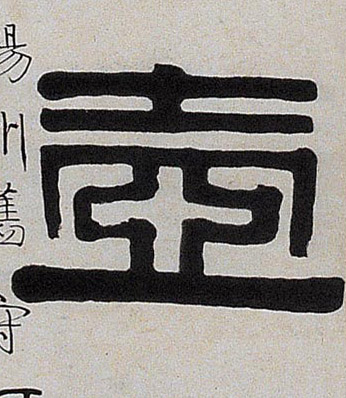 壺
州舊守